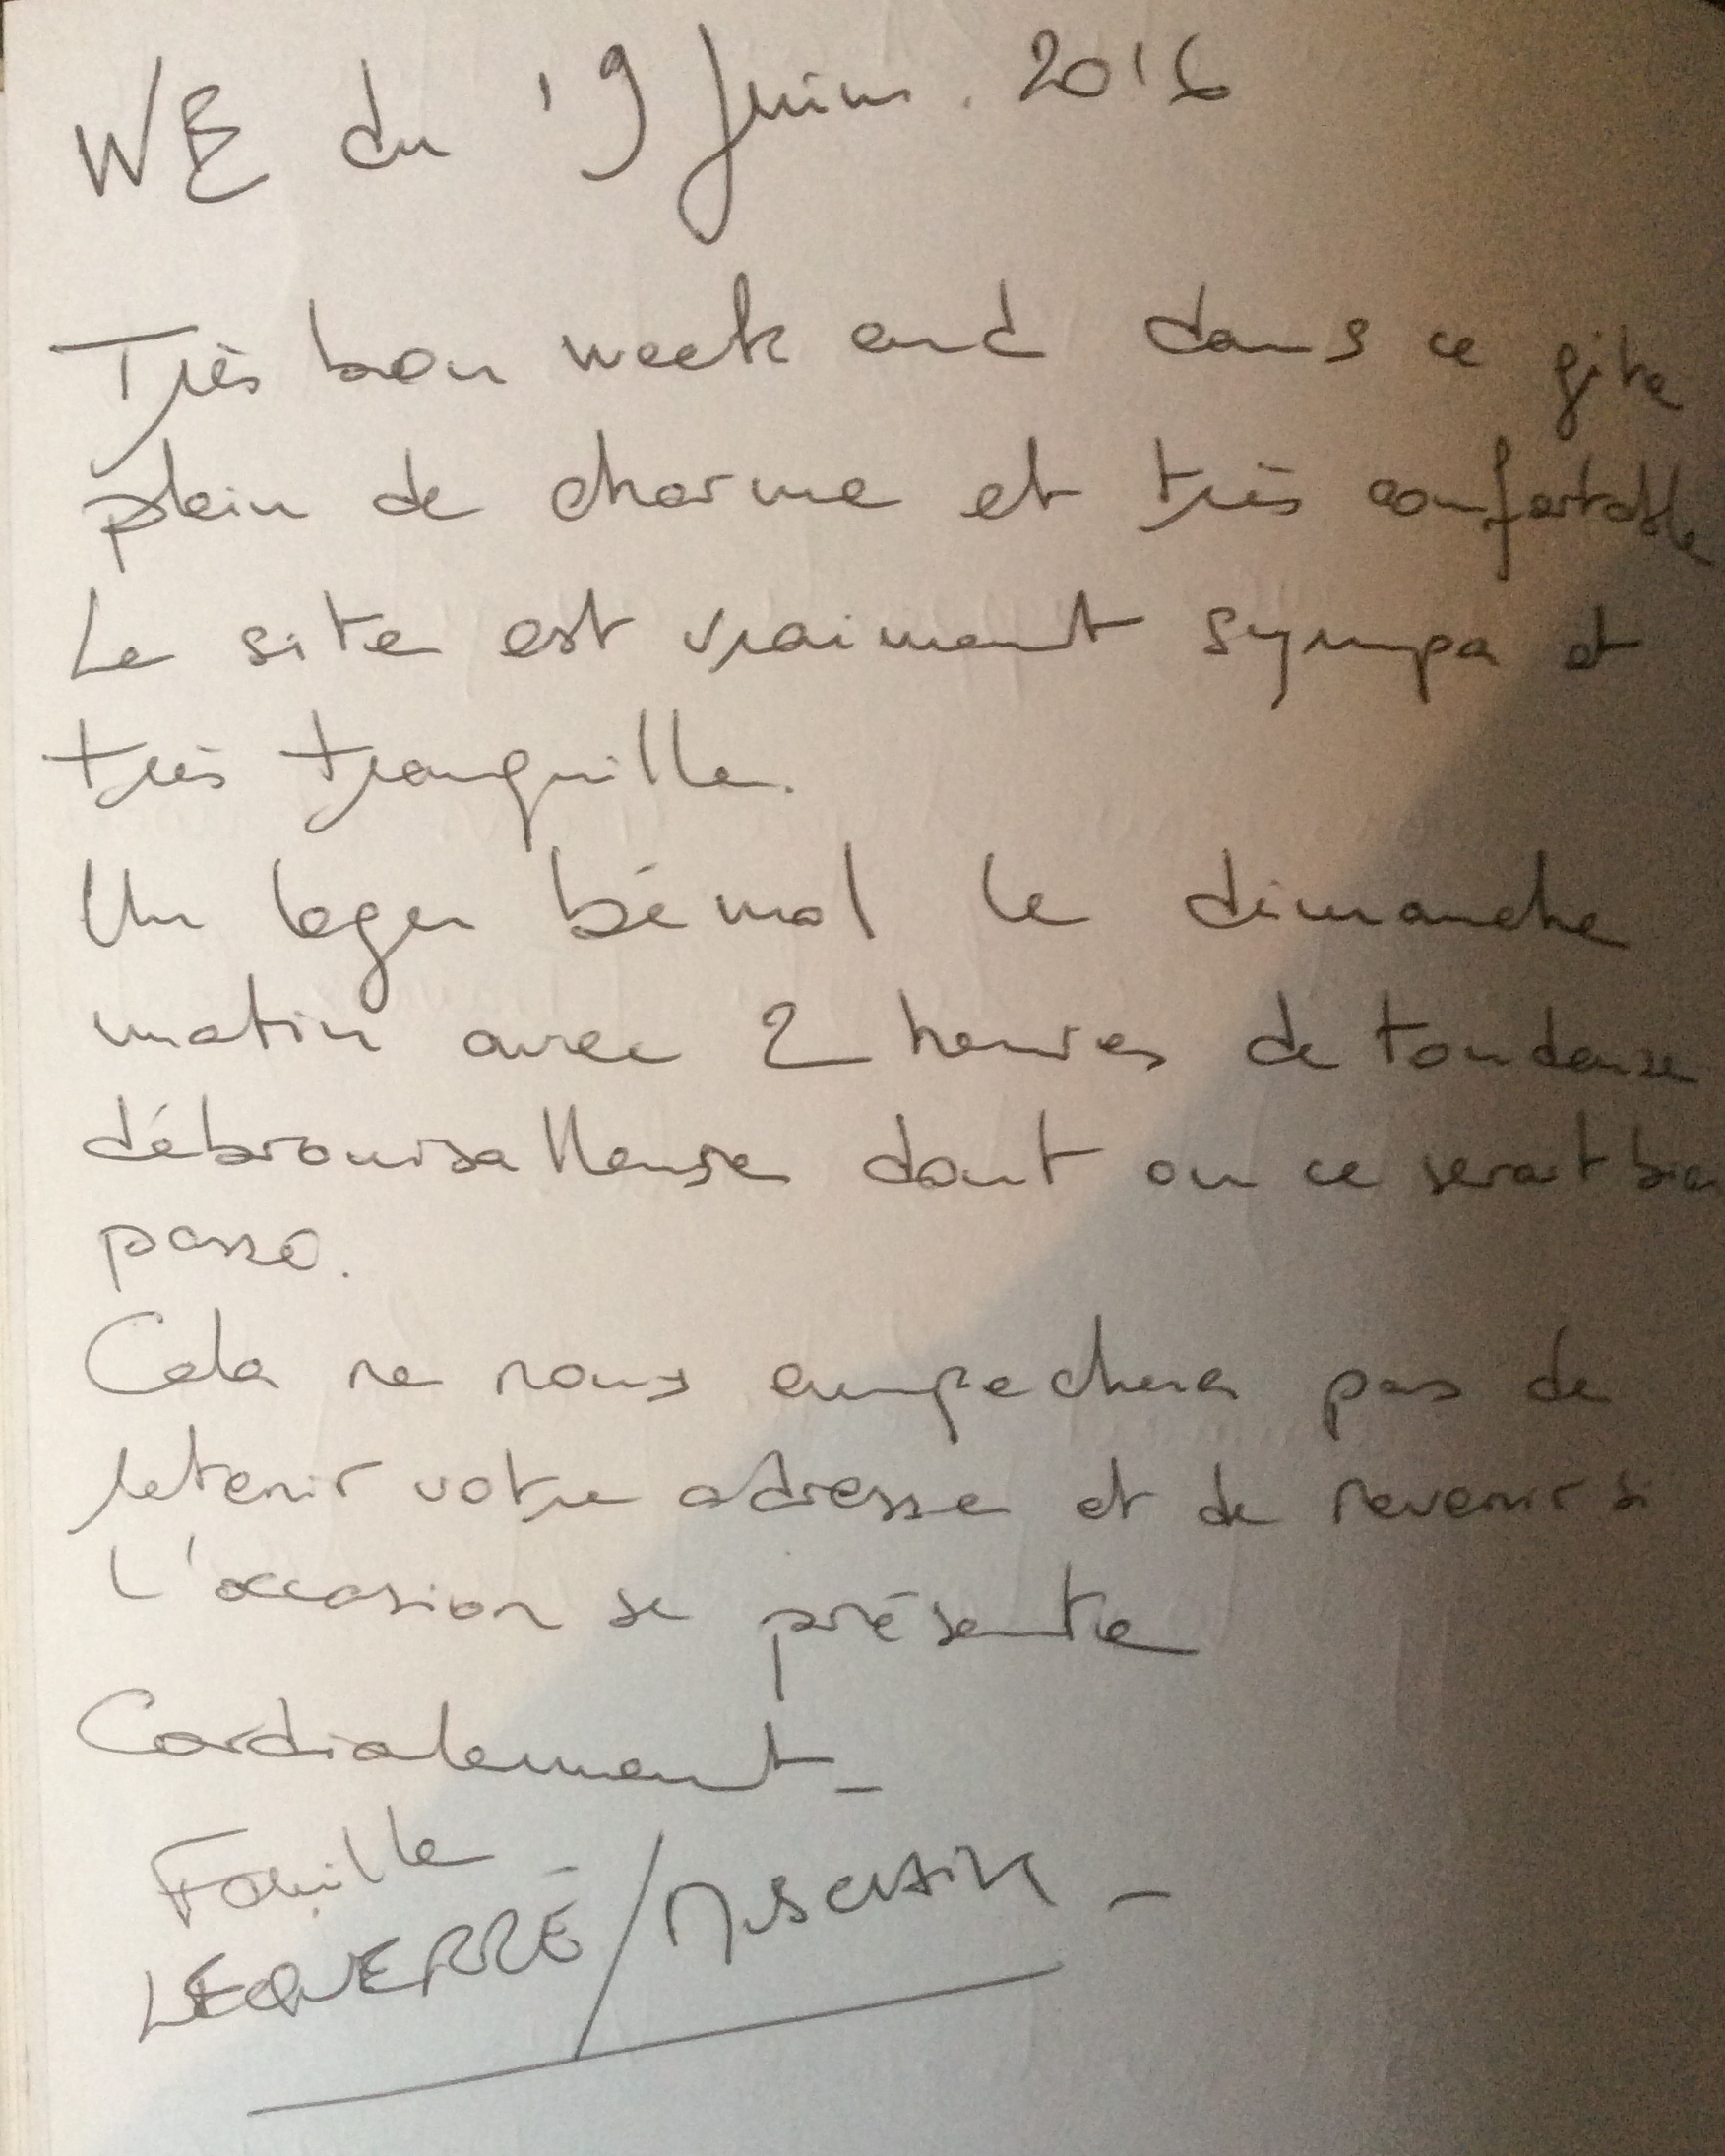 WE du 19 Juin. 2016
Très bon week end dans ce gite
plein de charme et très confortable
Le site est vraiment sympa et
très tranquille.
Un leger bémol le dimanche
matin avec 2 heures de tondeuse
débrousailleuse dont on ce serait bien
passé.
Cela ne nous empechera pas de
retenir votre adresse et de revenir si
l'occasion se présente
Cordialement -
Famille
LEQUERRÉ /